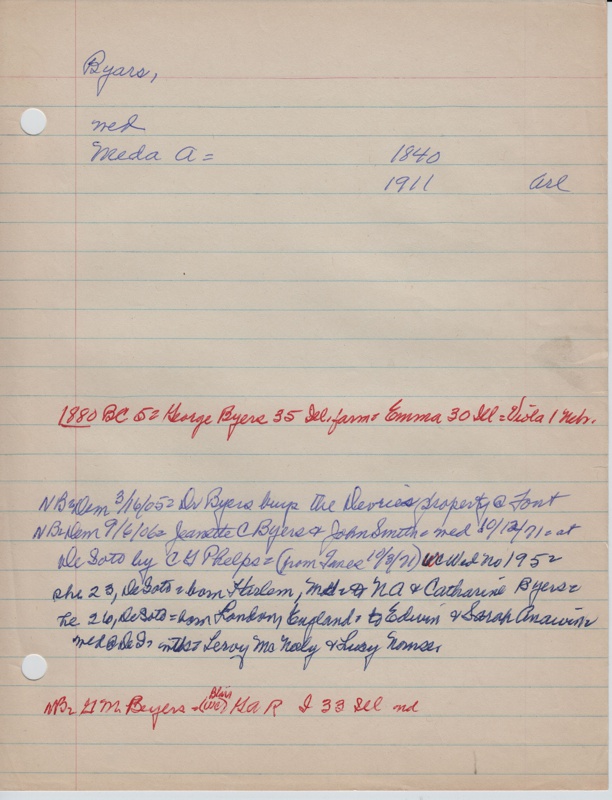 Byars,
wed
Meda A = 1840
1911 Arl
1880 BC 5 = George Byers 35 Ill, farm = Emma 30 Ill = Viola 1 Nebr.
NB = Dem 3/16/05 = Dr Byers buys the Devries property @ Font
NB = Dem 9/6/06 = Jeanette C Byers & John Smith = wed 10/12/71 = at
De Soto by C G Phelps = (from Times 10/3/71) WC Wed no 195 =
she 23, De Soto = born Haslem, = to N A & Catharine Byers =
he 26, De Soto = born London, England = to Edwin & Sarah
wed @ DeS = = Leroy McNeely & Lucy
NB = G M Byers = (Blair WC) G A R I 33 Ill nd